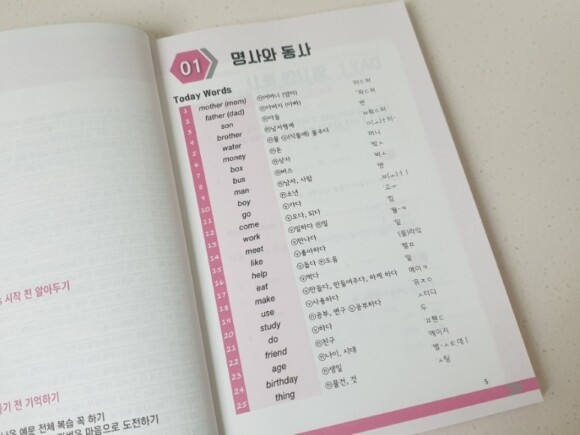 시작 전 알아두기
기 전 기억하기
예문 전체 복습 꼭 하기
마음으로 도전하기
01 명사와 동사
Today Words
1 mother (mom) ⓝ어머니 (엄마)
2 father (dad) ⓝ아버지 (아빠)
3 son ⓝ아들 썬
4 brother ⓝ남자형제
5 water ⓝ물 ⓥ(식물에) 물주다
6 money ⓝ돈 머니
7 box ⓝ상자
8 bus ⓝ버스
9 man ⓝ남자, 사람 맨
10 boy ⓝ소년
11 go ⓥ가다
12 come ⓥ오다, 되다 컴
13 work ⓥ일하다 ⓝ일
14 meet ⓥ만나다 밑
15 like ⓥ좋아하다 (을)라익
16 help ⓥ돕다 ⓝ도움 헬ㅍ
17 eat ⓥ먹다 잍
18 make ⓥ만들다, 만들어주다, 하게 하다 메이ㅋ
19 use ⓥ사용하다
20 study ⓝ공부, 연구 ⓥ공부하다 ㅅ터디
21 do ⓥ하다 두
22 friend ⓝ친구
23 age ⓝ나이, 시대 에이지
24 birthday ⓝ생일
25 thing ⓝ물건, 것 ㅅ띵
5